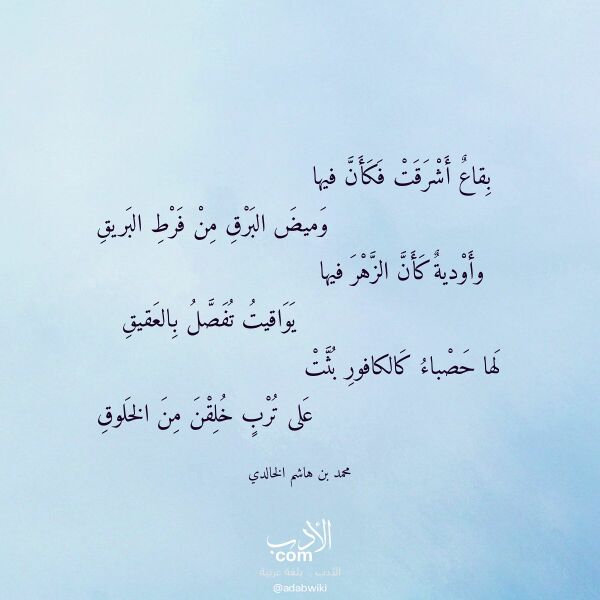 بِقاعٌ أَشْرَقَتْ فَكَأَنَّ فيها
وَميضَ البَرْقِ مِنْ فَرْطِ البَريقِ
وأَوْديةٌ كَأَنَّ الزَّهْرَ فيها
يَوَاقيتُ تُفَصَّلُ بِالعَقيقِ
لَها حَصْباءُ كَالكافورِ بُثَّتْ
عَلى تُرْبٍ خُلِقْنَ مِنَ الخَلوقِ
محمد بن هاشم الخالدي
الأدب
com
الأدب .. بلغة عربية
@adabwiki